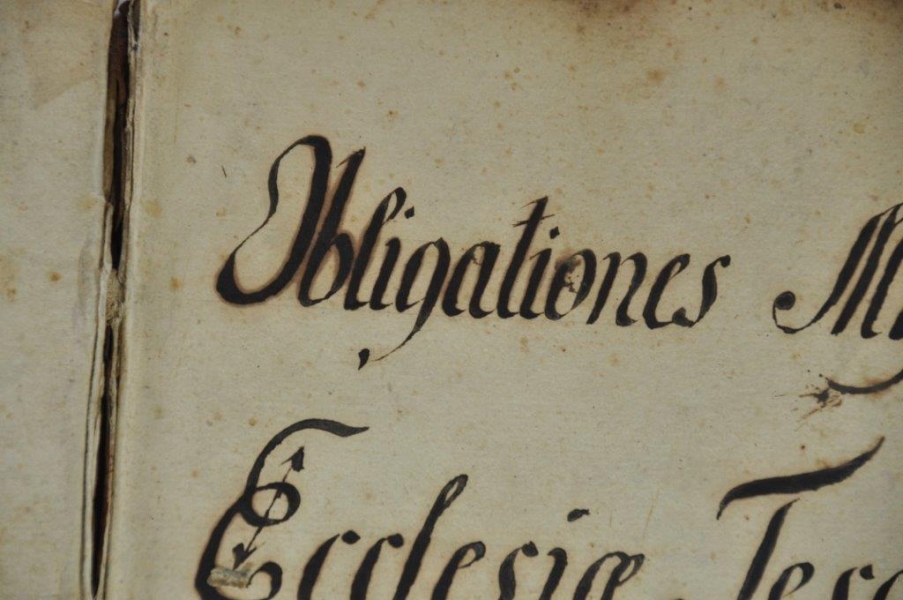 Obligationes M
Ecclesiæ Tesc